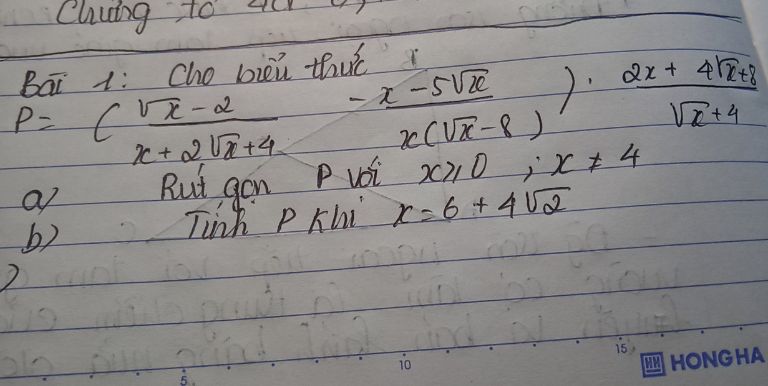 Chứng tỏ
Bài 1: Cho biểu thức
P = ( (√x - 2)/(x + 2√x + 4) - (x - 5√x)/(x(√x - 8)) ) . (2x + 4√x + 8)/(√x + 4)
a) Rút gọn P với x ≥ 0 ; x ≠ 4
b) Tính P khi x = 6 + 4√2
5 10 15
HH HONG HA